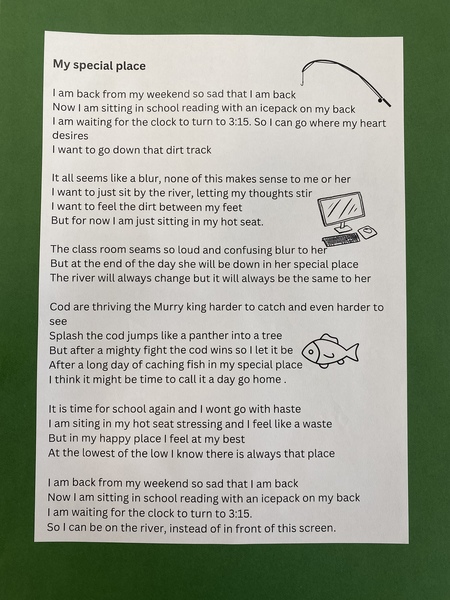 My special place
I am back from my weekend so sad that I am back
Now I am sitting in school reading with an icepack on my back
I am waiting for the clock to turn to 3:15. So I can go where my heart
desires
I want to go down that dirt track
It all seems like a blur, none of this makes sense to me or her
I want to just sit by the river, letting my thoughts stir
I want to feel the dirt between my feet
But for now I am just sitting in my hot seat.
The class room seams so loud and confusing blur to her
But at the end of the day she will be down in her special place
The river will always change but it will always be the same to her
Cod are thriving the Murry king harder to catch and even harder to
see
Splash the cod jumps like a panther into a tree
But after a mighty fight the cod wins so I let it be
After a long day of caching fish in my special place
I think it might be time to call it a day go home .
It is time for school again and I wont go with haste
I am siting in my hot seat stressing and I feel like a waste
But in my happy place I feel at my best
At the lowest of the low I know there is always that place
I am back from my weekend so sad that I am back
Now I am sitting in school reading with an icepack on my back
I am waiting for the clock to turn to 3:15.
So I can be on the river, instead of in front of this screen.